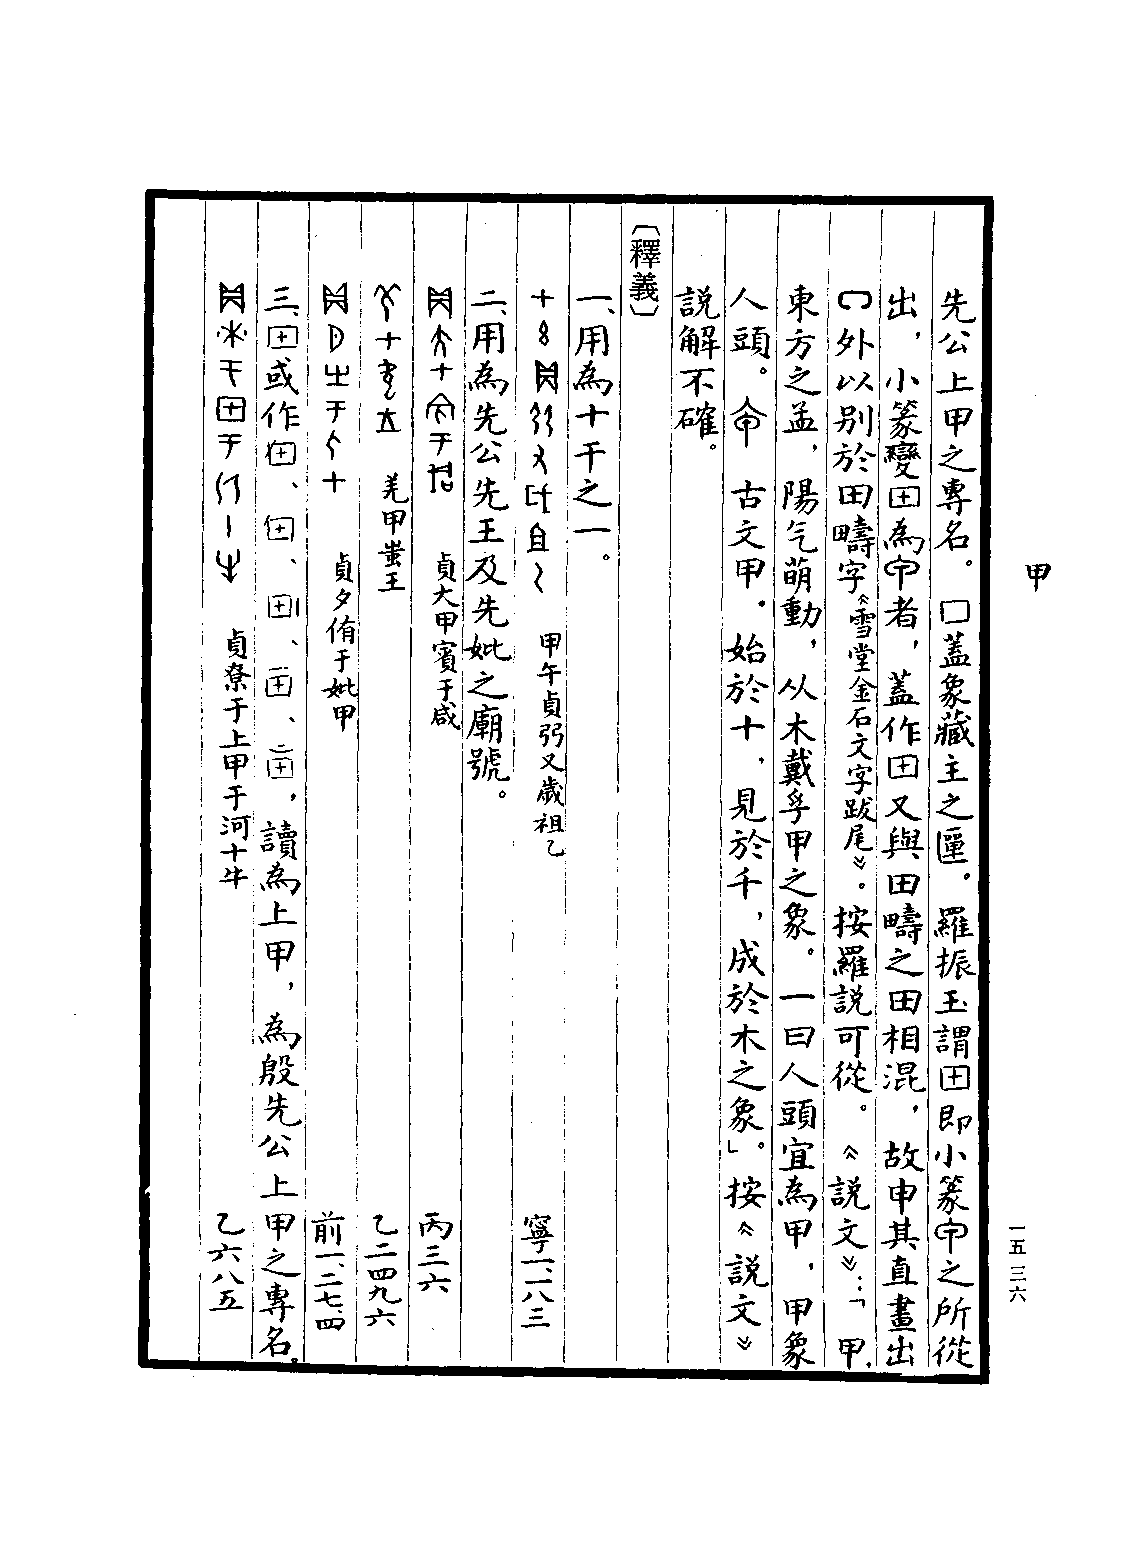 甲
先公上甲之專名。口蓋象藏主之匰。羅振玉謂田即小篆中之所從
出，小篆變田為中者，蓋作田又與田疇之田相混，故申其直畫出
外以別於田疇字《雪堂金石文字跋尾》。按羅説可從。《説文》：「甲，
東方之孟，陽气萌動，从木戴孚甲之象。一曰人頭宜為甲，甲象
人頭。古文甲，始於十，見於千，成於木之象」。按《説文》
説解不確。
〔釋義〕
一、用為十干之一。
甲午貞弜又歲祖乙 寧一、一八三
二、用為先公先王及先妣之廟號。
貞大甲賓于咸 丙三六
羌甲蚩王 乙二四九六
貞夕侑于妣甲 前一、二七、四
三、田或作、、、、，讀為上甲，為殷先公上甲之專名。
貞尞于上甲于河十牛 乙六八五
一五三六